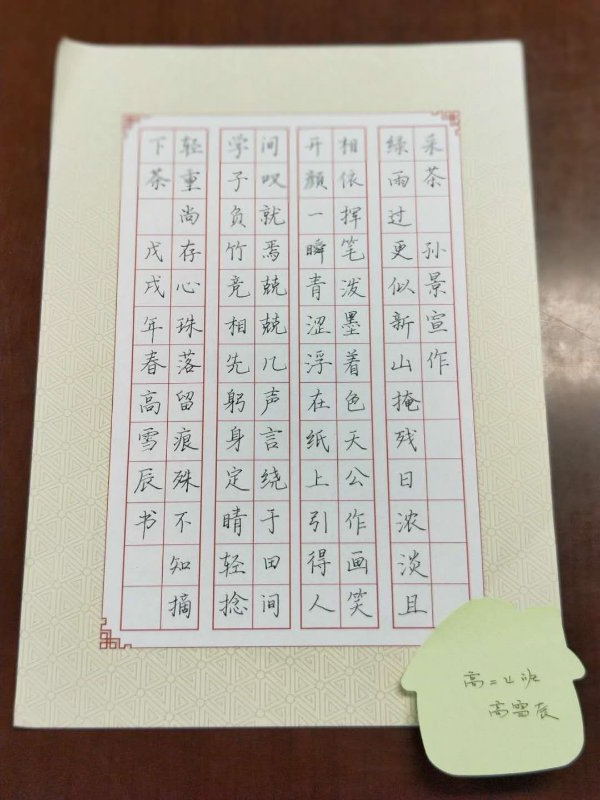 采茶 孙景宣作
绿雨过更似新山掩残日浓淡且
相依挥笔泼墨着色天公作画笑
开颜一瞬青涩浮在纸上引得人
间叹就焉兢兢几声言绕于田间
学子负竹竞相先躬身定睛轻捻
轻重尚存心珠落留痕殊不知摘
下茶 戊戌年春高雪辰书
高二 班
高雪辰